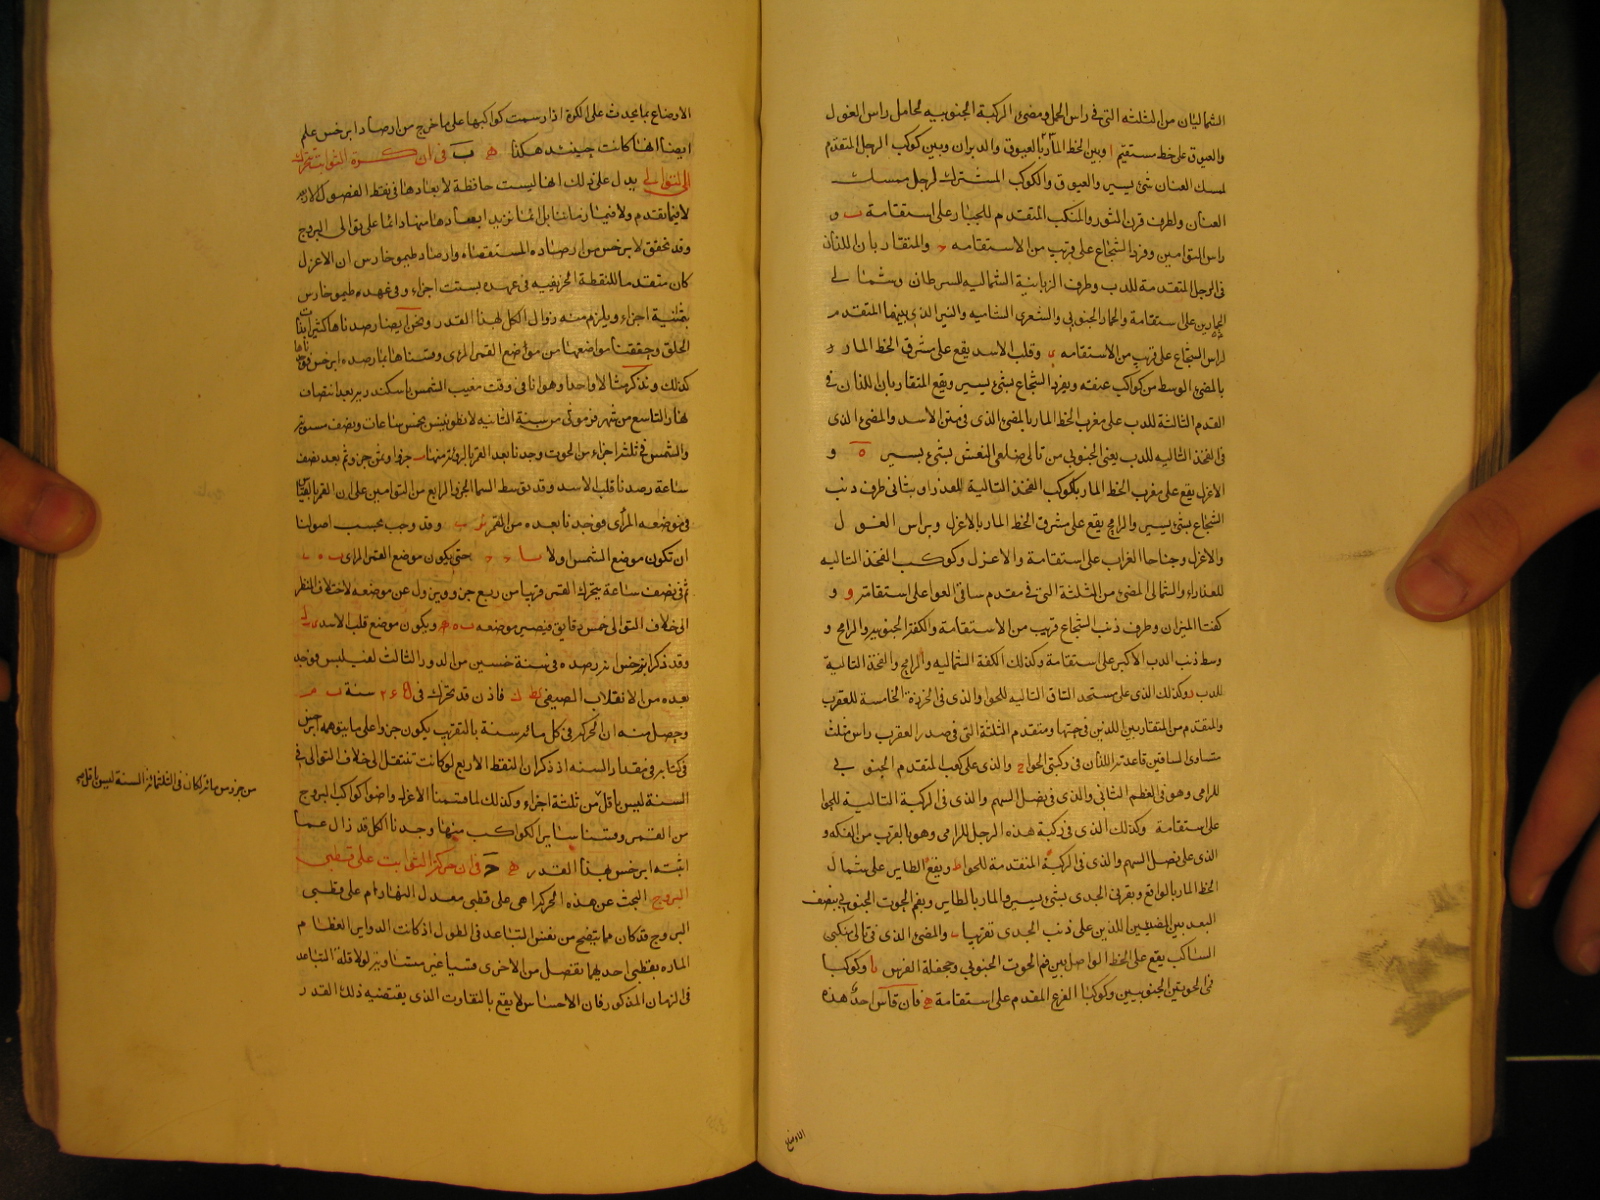 الشماليان من الثلثه التى فى راس الحمل ومضئ الركبة الجنوبيه محامل راس الغول
والعيوق على خط مستقيم ا وبين الخط المار بالعيوق والدبران وبين كوكب الرجل المتقدم
لمسك العنان شئ يسير والعيوق والكوكب المشترك لرجل ممسك
العنان ولطرف قرن الثور والمنكب المتقدم للجبار على استقامة ب و
راس التوامين وفرد الشجاع على قريب من الاستقامه ج والمتقاربان اللذان
فى الرجل المتقدمة للدب وطرف الزبانية الشماليه للسرطان وشمالى
الحمارين على استقامة والحمار الجنوبى والشعرى الشاميه والنير الذى بينهما المتقدم
لراس الشجاع على قريب من الاستقامه د وقلب الاسد يقع على مشرق الخط المار
بالمضئ الوسط من كواكب عنقه وبفرد الشجاع بشئ يسير ويقع المتقاربان اللذان فى
القدم الثالثة للدب على مغرب الخط المار بالمضئ الذى فى متن الاسد والمضئ الذى
فى الفخذ التاليه للدب يعنى الجنوبى من تالى ضلعى النعش بشئ يسير ه و
الاعزل يقع على مغرب الخط المار بكوكب الفخذ التالية للعذرا وبثانى طرف ذنب
الشجاع بشئ يسير والرامح يقع على مشرق الخط المار بالاعزل وبراس الغول
والاعزل وجناحا الغراب على استقامة والاعزل وكوكب الفخذ التاليه
للعذراء والشمالى المضئ من الثلثة التى فى مقدم ساقى العوا على استقامة و و
كفتا الميزان وطرف ذنب الشجاع قريب من الاستقامة والكفة الجنوبيه والرامح و
وسط ذنب الدب الاكبر على استقامة وكذلك الكفة الشماليه والرامح والفخذ التاليه
للدب ز وكذلك الذى على مستحد الساق التاليه للحوا والذى فى الخرزة الخامسة للعقرب
والمتقدم من المتقاربين اللذين فى جبهتها ومتقدم الثلثة التى فى صدر العقرب راس مثلث
متساوى الساقين قاعدته اللذان فى ركبتى الحوا ح والذى على كعب المتقدم الجنوبى
للرامى وهو فى العظم الثانى والذى فى نصل السهم والذى فى الركبة التالية للحوا
على استقامة وكذلك الذى فى ركبة هذه الرجل للرامى وهو بالقرب من الفكه و
الذى على نصل السهم والذى فى الركبة المتقدمة للحوا ط ويقع الطاير على شمال
الخط المار بالواقع وبقرنى الجدى بشئ يسير والمار بالطاير وبفم الحوت الجنوبى ينصف
البعد بين المضيين اللذين على ذنب الجدى تقريبا ى والمضئ الذى فى تالى منكبى
الساكب يقع على الخط الواصل بين فم الحوت الجنوبى وجحفلة الفرس يا وكوكبا
فى الحوتين الجنوبيين وكوكبا الفرغ المقدم على استقامة فان قاس احد هذه
الاوضاع
الاوضاع بما يحدث على الكرة اذا رسمت كواكبها على ما خرج من ارصاد ابرخس علم
ايضا انها كانت حينئذ هكذا ب فى ان كرة الثوابت تتحرك
الى التوالى يدل على ذلك انها ليست حافظة لابعادها فى نقط الفصول الاربع
لا فيما تقدم ولا فيما زماننا بل انما تزيد ابعادها منها دائما على توالى البروج
وقد تحقق لابرخس من ارصاده المستقصاه وارصاد طيموخارس ان الاعزل
كان متقدما للنقطة الخريفيه فى عهده بستت اجزاء وفى عهده طيموخارس
بثمنية اجزاء ويلزم منه زوال الكل لهذا القدر ونحن ايضا رصدناها كثيرا بذات
الحلق وحققنا مواضعها من مواضع القمر المرئى وقسناها بما رصده ابرخس فوجدناها
كذلك ونذكر مثالا واحدا وهو انا فى وقت مغيب الشمس باسكندريه بعد انتصاف
نهار التاسع من شهر فرموثى من سنة الثانيه لانطونينس بخمس ساعات ونصف مستوية
والشمس فى ثلثة اجزاء من الحوت وجدنا بعد القمر بالرؤية منها جزوا وثمن جزو ثم بعد نصف
ساعة رصدنا قلب الاسد وقد توسط السما الجزو الرابع من التوامين على ان القمر بالقياس
فى موضعه المرئى فوجدنا بعده من القمر وقد وجب بحسب اصولنا
ان تكون موضع الشمس اولا حتى يكون موضع القمر المرئى
ثم فى نصف ساعة يتحرك القمر قريبا من ربع جزو ويزول عن موضعه لاختلاف المنظر
الى خلاف التوالى خمس دقايق فيصير موضعه ويكون موضع قلب الاسد
وقد ذكر ابرخس انه رصده فى سنة خمسين من الدور الثالث لفنيلبس فوجد
بعده من الانقلاب الصيفى كط ك فاذن قد تحرك فى ٢٦٥ سنة ب م
وحصل منه ان الحركة فى كل مائة سنة بالتقريب يكون جزوا على ما يتوهمه ابرخس
فى كتابه فى مقدار السنه اذ ذكر ان النقط الاربع لو كانت تنتقل الى خلاف التوالى فى
السنة ليس باقل من ثلثة اجزاء وكذلك لما قسمنا الاعزل واضوا كواكب البروج
من القمر وقسنا بساير الكواكب منها وجدنا الكل قد زال عما
اثبته ابرخس بهذا القدر ج فى ان حركة الثوابت على قطبى
البروج البحث عن هذه الحركة اهى على قطبى معدل النهار ام على قطبى
البروج قد كان مما يتضح من نفس التباعد فى الطول اذ كانت الدواير العظام
الماره بقطبى احديهما تفصل من الاخرى قسيا غير متساوية لولا قلة التباعد
فى الزمان المذكور فان الاحساس لا يقع بالتفاوت الذى يقتضيه ذلك القدر